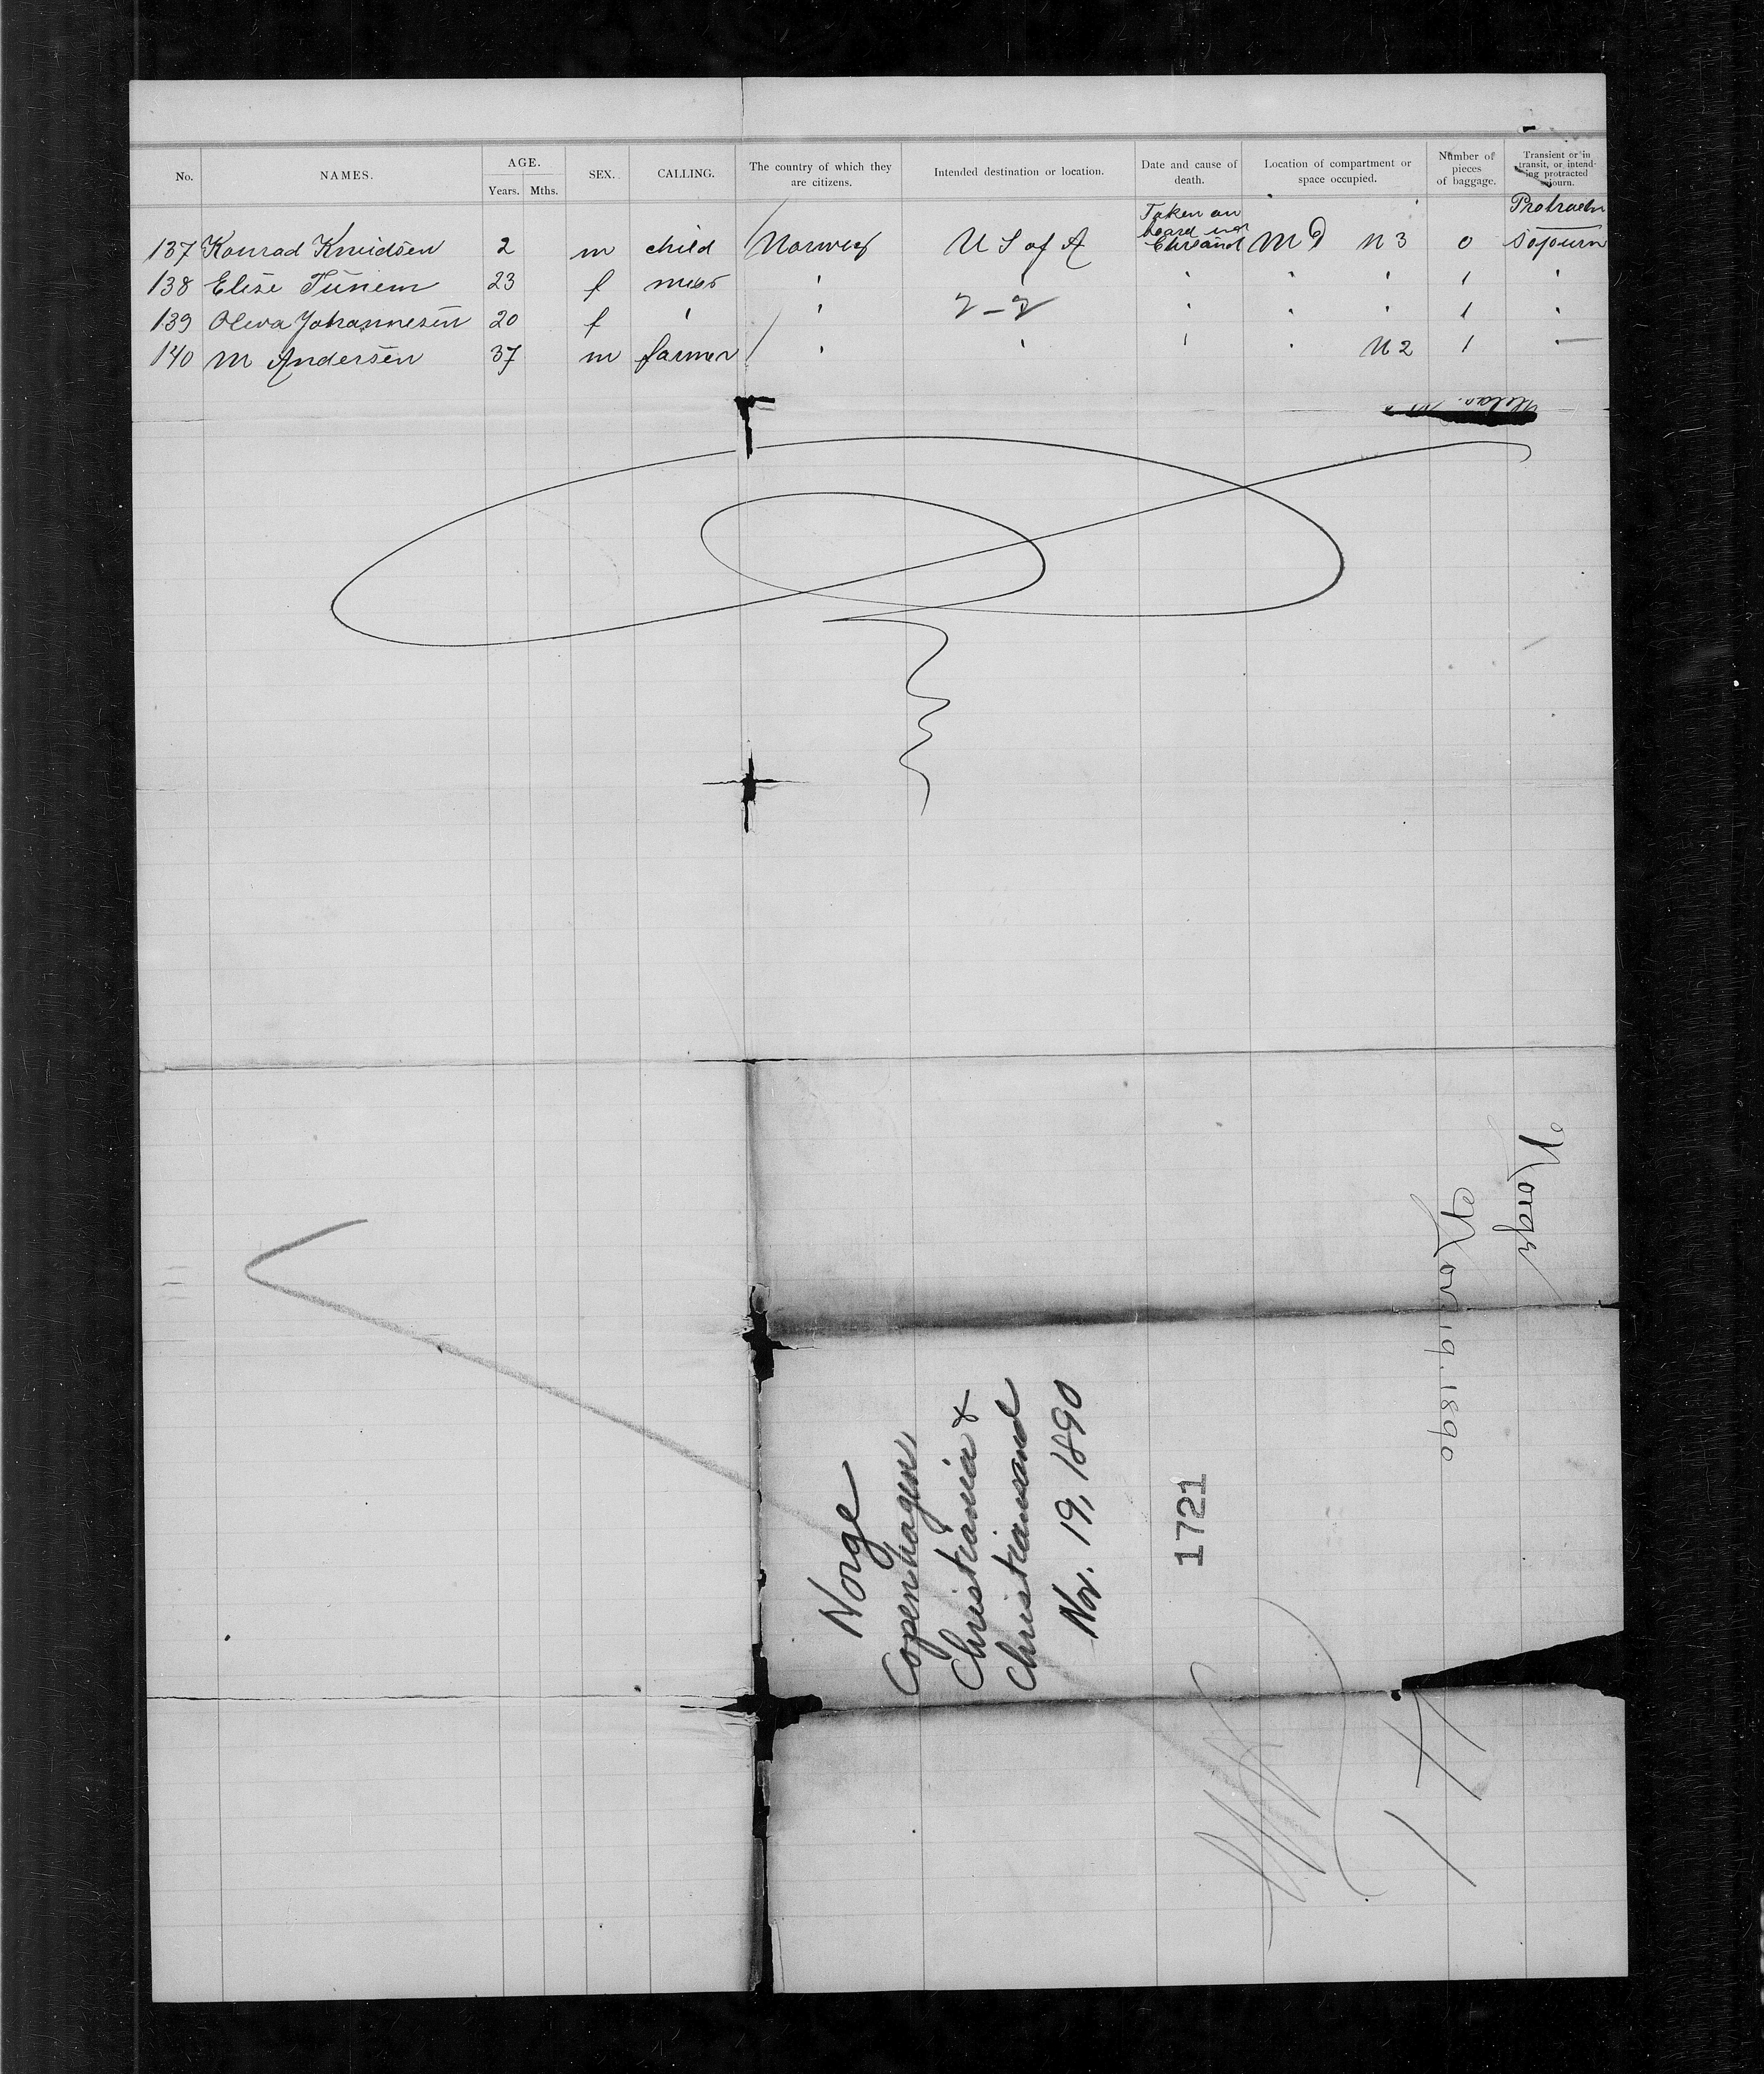 No. NAMES. AGE. Years. Mths. SEX. CALLING. The country of which they are citizens. Intended destination or location. Date and cause of death. Location of compartment or space occupied. Number of pieces of baggage. Transient or in transit, or intending protracted sojourn.
Taken on Protractn
137 Konrad Knudsen 2 m child Norway U S of A board in Chrsand M D N 3 0 sojourn
138 Elise Tünem 23 f miss ' ' ' ' ' 1 '
139 Oliva Johannesen 20 f ' ' 2-2 ' ' ' 1 '
140 M Andersen 37 m farmer ' ' ' ' N 2 1 '
Norge
Nov. 19. 1890
Norge
Copenhagen,
Christiania &
Christiansand
Nov. 19, 1890
1721